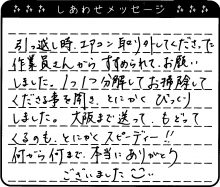 しあわせメッセージ
引っ越し時、エアコン取り外してくださった
作業員さんから すすめられて、お願い
しました。1つ1つ分解してお掃除して
くださる事を聞き、とにかく びっくり
しました。大阪まで送って もどって
くるのも、とにかくスピーディー!!
何から何まで、本当にありがとう
ございました